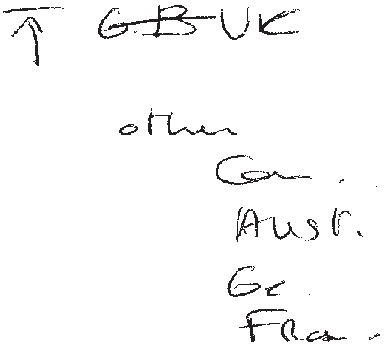 GB UK
other
Can.
Aust.
Ge.
Fran.